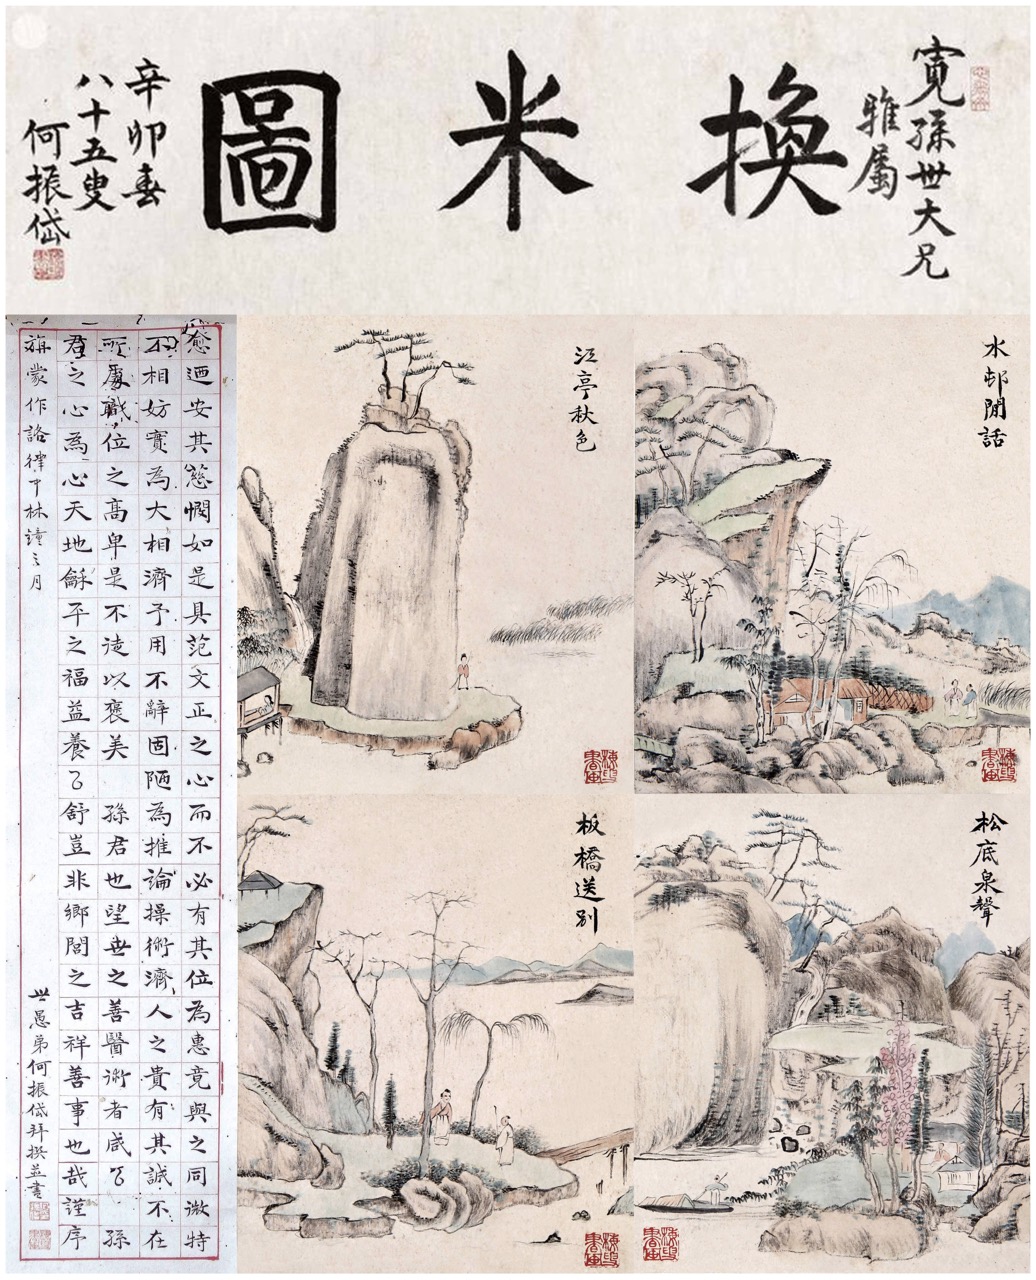 寬孫世大兄
雅屬
換米圖
辛卯春
八十五叟
何振岱
水邨閒話
江亭秋色
松底泉聲
板橋送別
愈迺安其慈憫如是具范文正之心而不必有其位為惠竟與之同微特
不相妨實為大相濟予用不辭固陋為推論操術濟人之貴有其誠不在
所處職位之高卑是不徒以褒美 孫君也望世之善醫術者咸以 孫
君之心為心天地龢平之福益養以舒豈非鄉閭之吉祥善事也哉謹序
旃蒙作詻律中林鐘之月
世愚弟何振岱拜撰並書